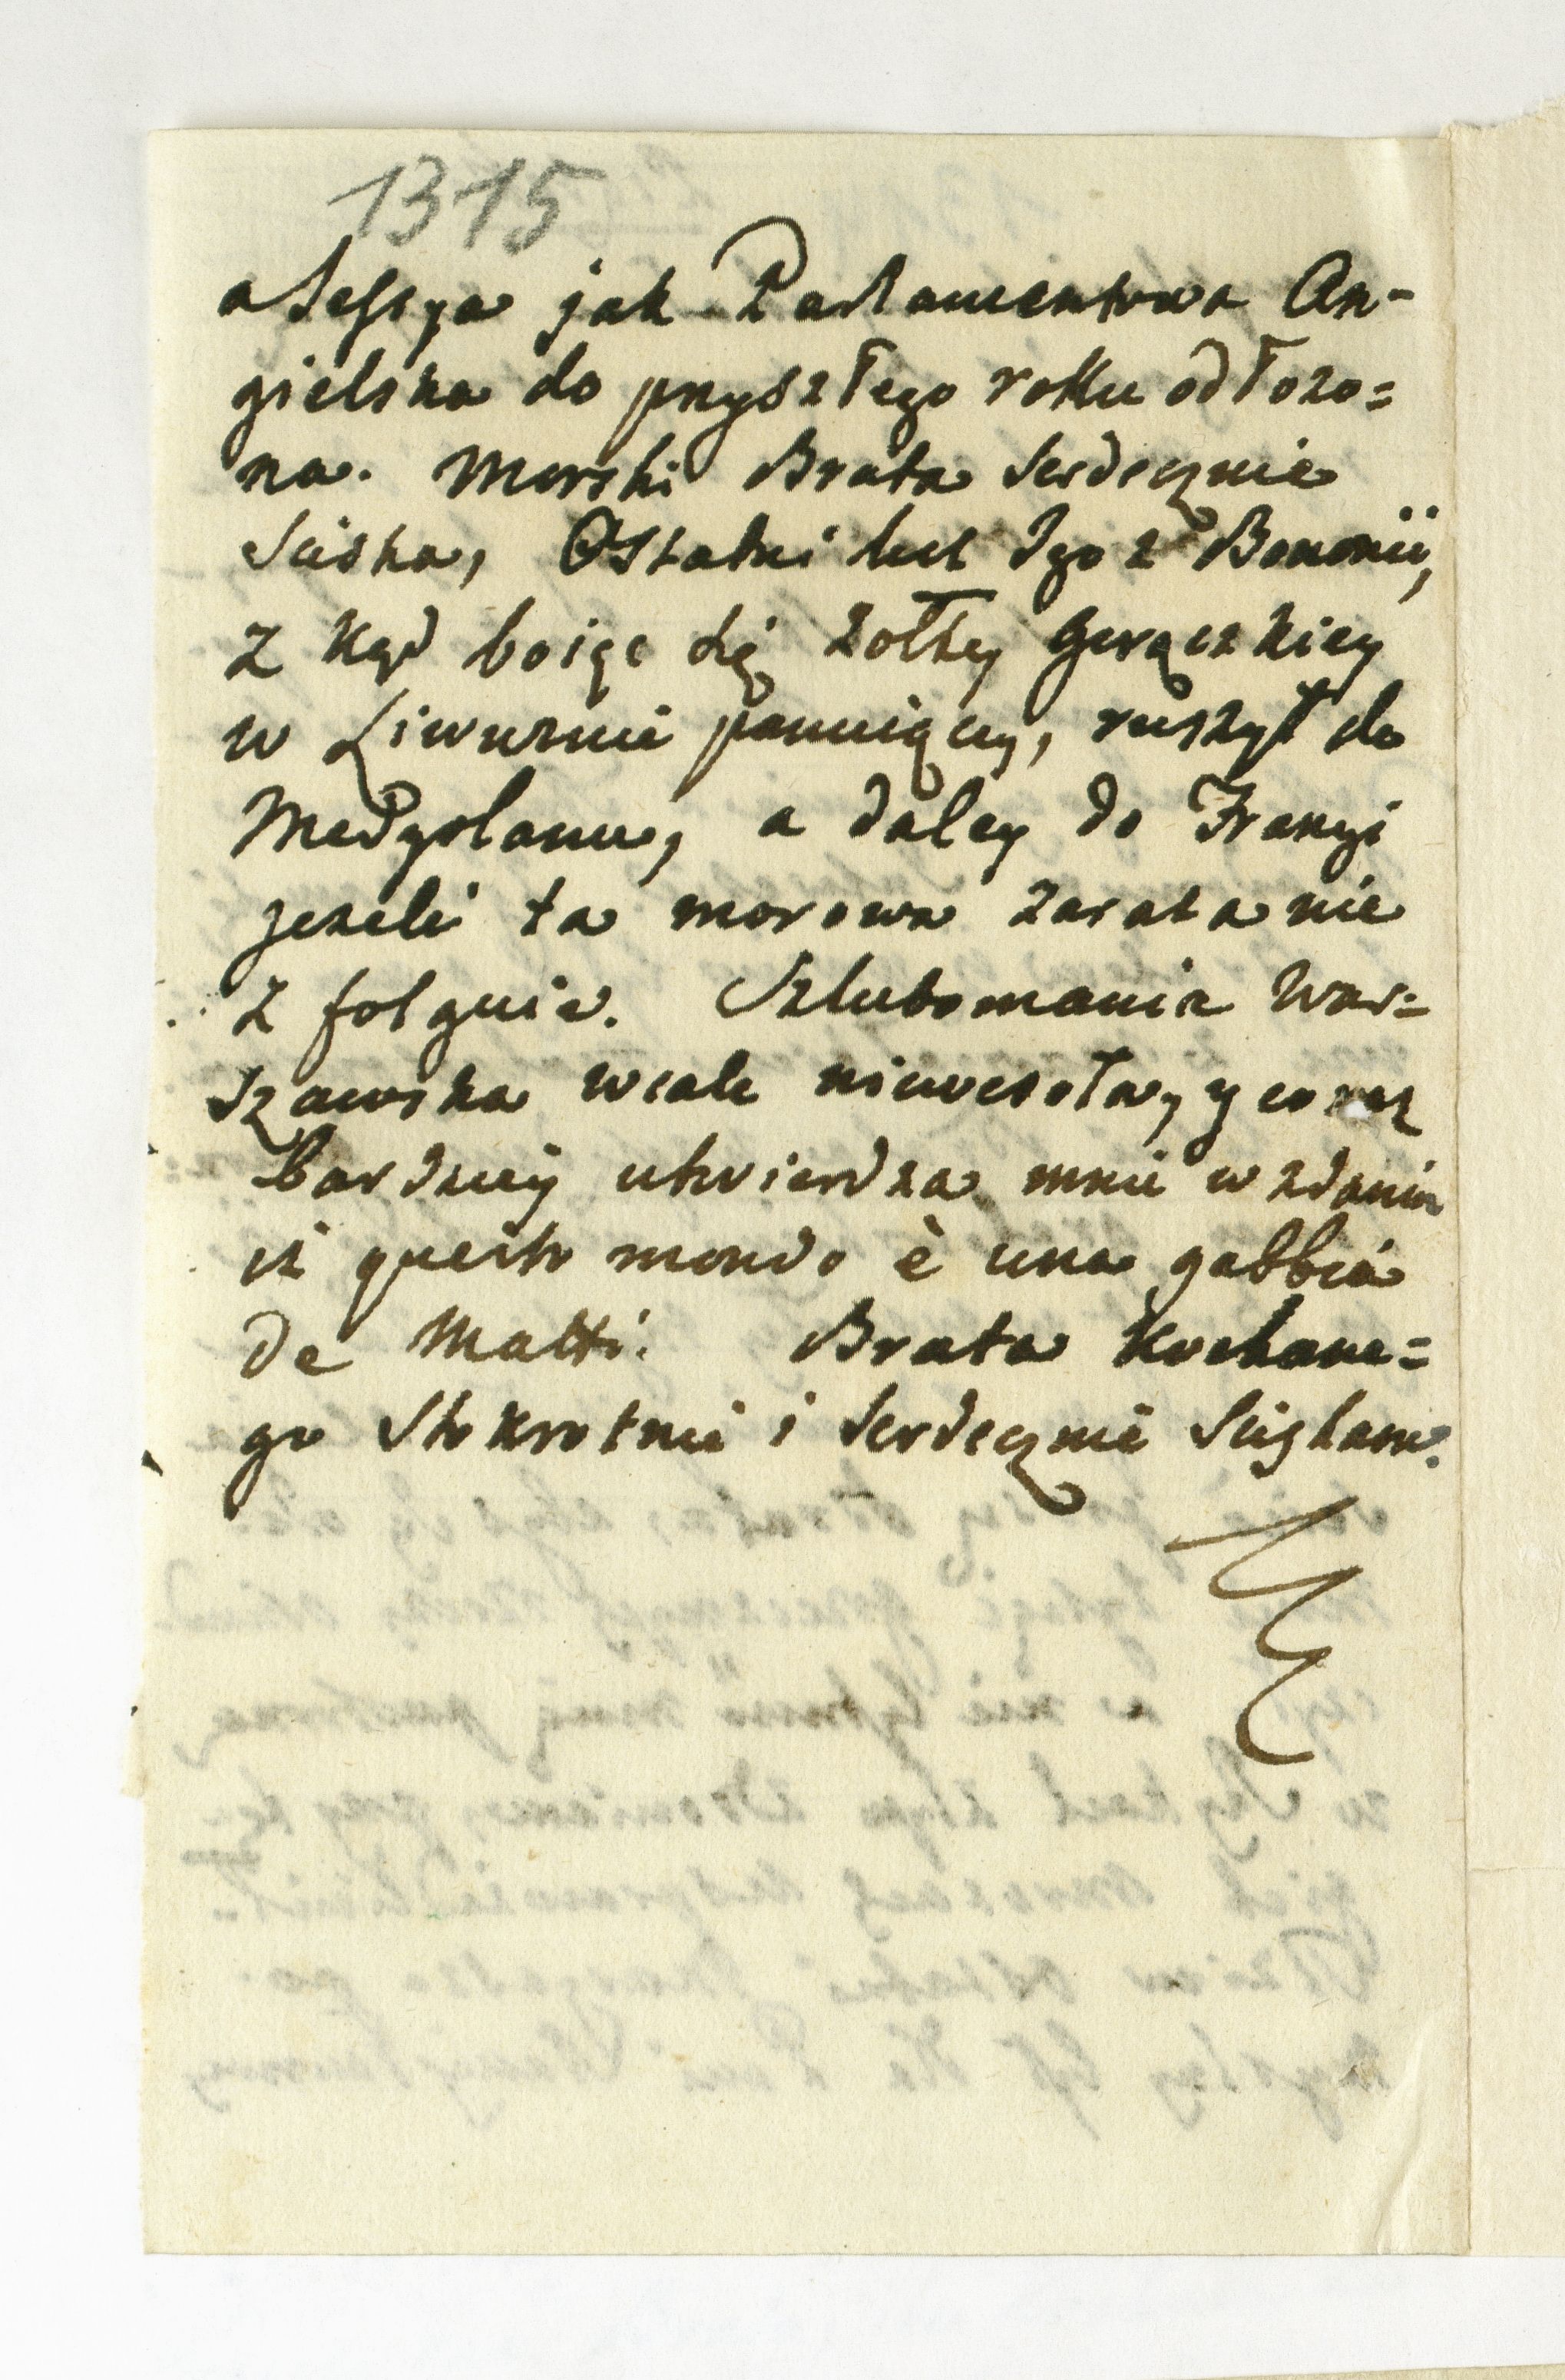 1315
a Sessya jak Parlamentowa An-
gielska do przyszłego roku odłożo=
na. Morski Brata Serdecznie
Sciska, Ostatni list Jgo z Bononii,
z kąd boiąc się żołtey gorączkiey
w Liwurnie panuiącey, ruszył do
Medyolanu, a daley do Francyi
jezeli ta morowa zaraza nie
z folguie. Szlubomania War=
szawska wcale niewesoła, y coraz
bardziey utwierdza mnie w zdaniu
iż questo mondo è una gabbia
de Matti. Brata Kochane=
go Stokrotnie i Serdecznie Sciskam.